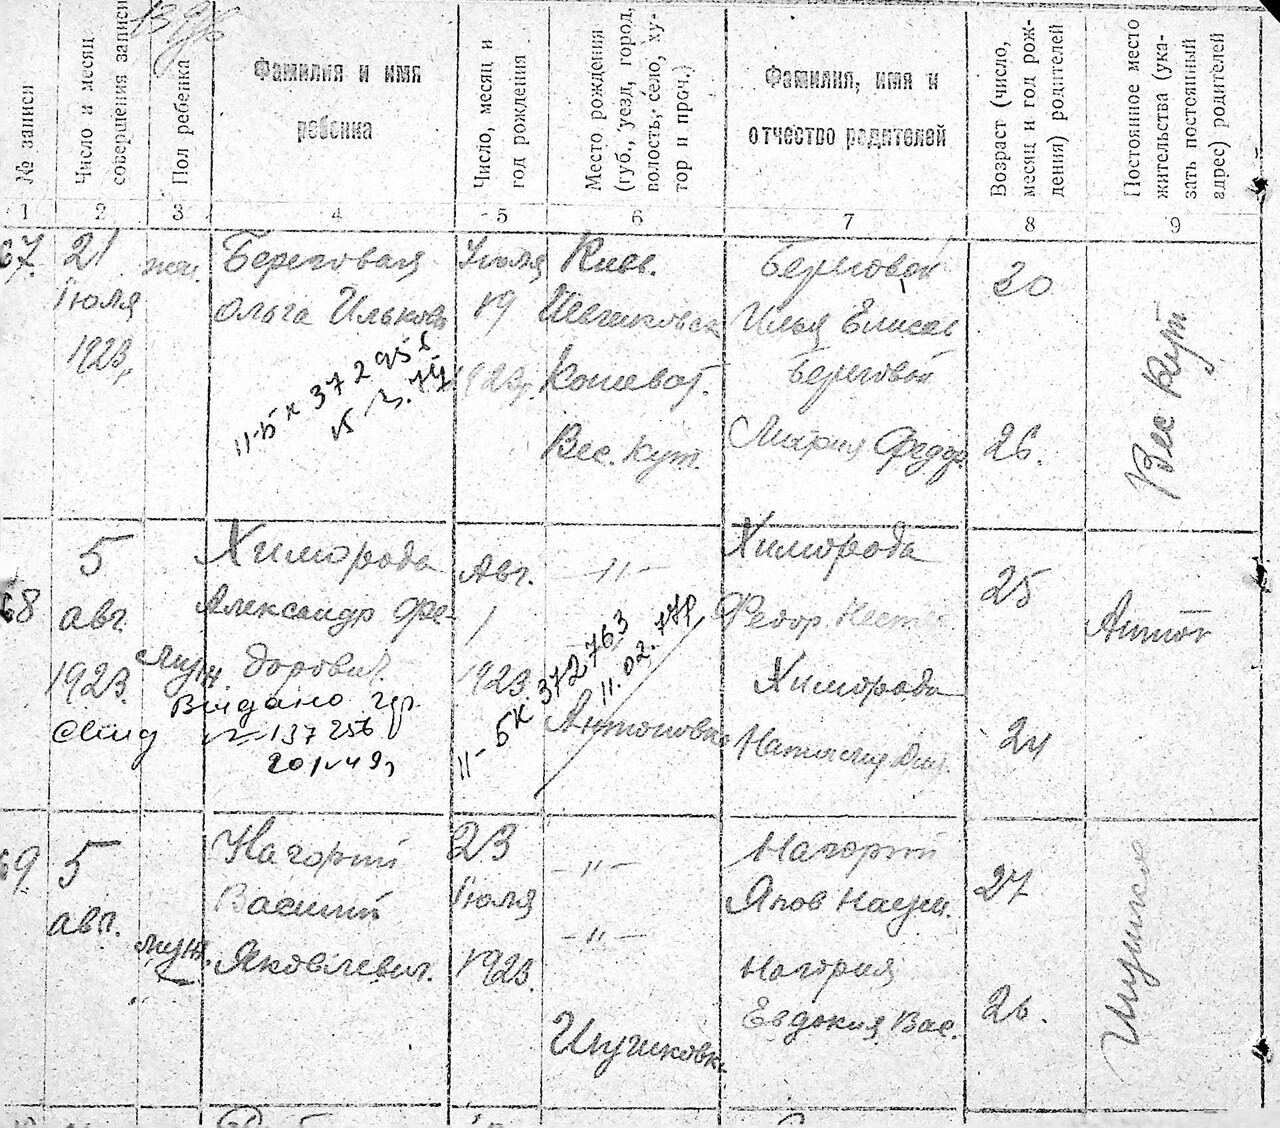 № записи
Число и месяц совершения записи
Пол ребенка
Фамилия и имя
ребенка
Число, месяц и
год рождения
Место рождения
(губ., уезд, город,
волость, село, ху-
тор и проч.)
Фамилия, имя и
отчество родителей
Возраст (число,
месяц и год рож-
дения) родителей
Постоянное место
жительства (ука-
зать постоянный
адрес) родителей
1 2 3 4 5 6 7 8 9
67. 21 жен. Береговая Июля Киев. Береговой 30
Июля Ольга Ильков 19 Илья Елисе
1923 1923 Кошеват. Береговой
11-БК 372956
Вес. Кут. Мария Федор. 26. Вес Кут
68 5 Химорода Авг. -"- Химорода 25
авг. Александр Фе- 1 Федор Нест Антон
1923 муж. дорович. 1923. Химорода
Видано
№ 137256 Антоновка 24
11-БК 372763
11.02.77р
69 5 Нагорний 23 -"- Нагорний 27
авг. Василий Июля Яков Наум.
муж. Яковлевич. 1923. -"- Нагория
" Евдокия Вас. 26.